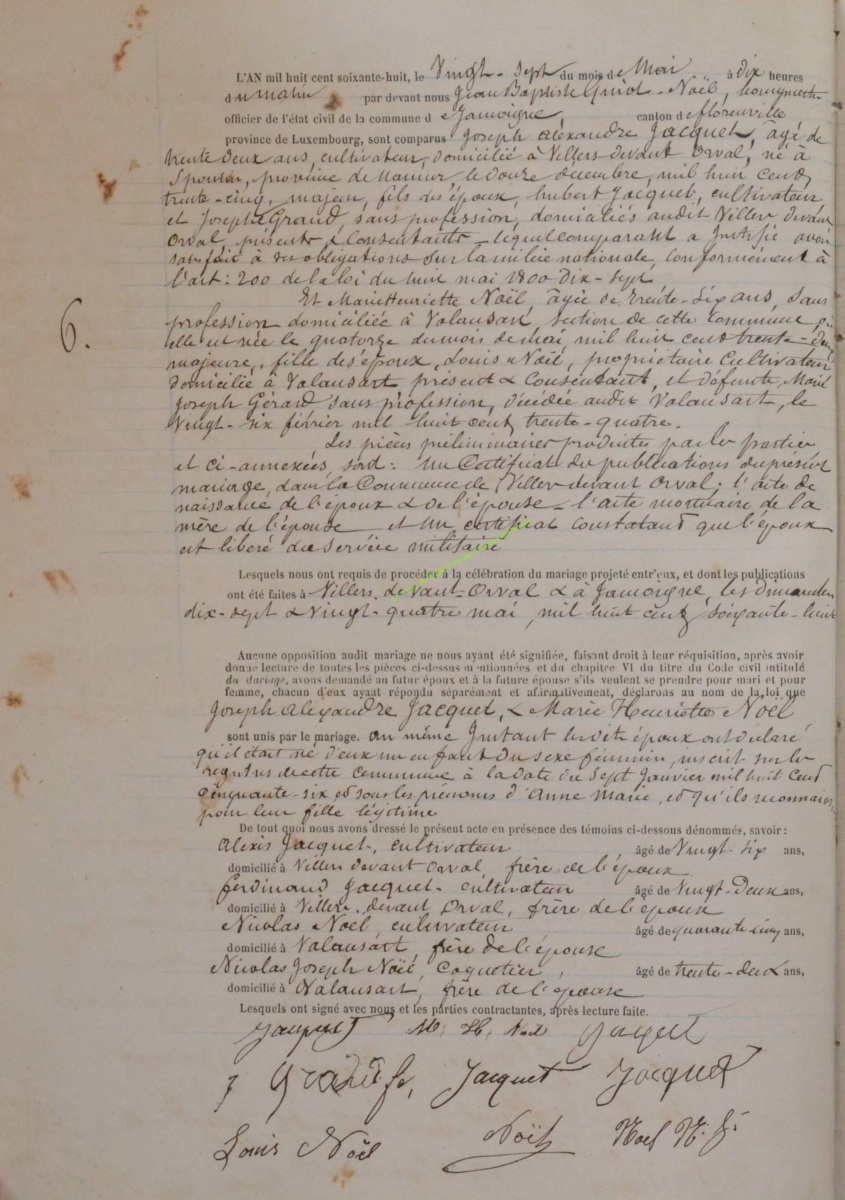 L'AN mil huit cent soixante-huit, le Vingt-Sept du mois de Mai à dix heures
du matin par devant nous Jean Baptiste Guiot-Noël, bourgmestre
officier de l'état civil de la commune de Jamoigne, canton de florenville
province de Luxembourg, sont comparus Joseph alexandre Jacquet, âgé de
trente deux ans, cultivateur, domicilié à Villers devant Orval, né à
Spontin, province de Namur le douze decembre, mil huit cent
trente-cinq, majeur, fils des époux, hubert Jacquet, cultivateur
et Joseph Grand, sans profession, domiciliés audit Villers devant
Orval, présents & Consentants lequel comparant a justifié avoir
satisfait à ses obligations sur la milice nationale, conformément à
l'art: 200 de la loi du huit mai 1800 Dix-sept
Et Marie Henriette Noël, âgée de trente-six ans, sans
6.
profession domiciliée à Valansart, section de cette commune, où
elle est née le quatorze du mois de mai, mil huit cent trente-deux
majeure, fille des époux, Louis Noël, propriétaire Cultivateur
domicilié à Valansart présent & Consentant, et défunte Marie
Joseph Gérard sans profession, décédée audit Valansart, le
Vingt-six février mil huit cent trente-quatre.
Les pièces préliminaires produites par les parties
et ci-annexées, sont: un Certificat de publications du présent
mariage, dans la Commune de Villers devant Orval; l'acte de
naissance de l'époux & de l'épouse - l'acte mortuaire de la
mère de l'épouse et un certificat constatant que l'époux
est libéré du service militaire
Lesquels nous ont requis de procéder à la célébration du mariage projeté entr'eux, et dont les publications
ont été faites à Villers devant-Orval & à Jamoigne, les dimanches
dix-sept & Vingt-quatre mai, mil huit cent soixante-huit
Aucune opposition audit mariage ne nous ayant été signifiée, faisant droit à leur réquisition, après avoir
donné lecture de toutes les pièces ci-dessus mentionnées et du chapitre VI du titre du Code civil intitulé
du Mariage, avons demandé au futur époux et à la future épouse s'ils veulent se prendre pour mari et pour
femme, chacun d'eux ayant répondu séparément et affirmativement, déclarons au nom de la loi que
Joseph Alexandre Jacquet, & Marie Henriette Noël
sont unis par le mariage. au même Instant lesdits époux ont déclaré
qu'il était né d'eux un enfant du sexe féminin, inscrit sur les
registres de cette commune à la date du Sept Janvier mil huit cent
cinquante-six et sous les prénoms d'Anne Marie, et qu'ils reconnaissent
pour leur fille légitime
De tout quoi nous avons dressé le présent acte en présence des témoins ci-dessous dénommés, savoir:
Alexis Jacquet, cultivateur âgé de Vingt-six ans,
domicilié à Villers devant Orval, frère de l'époux
ferdinand Jacquet-cultivateur âgé de Vingt-Deux ans,
domicilié à Villers devant Orval, frère de l'époux
Nicolas Noël, cultivateur âgé de quarante-cinq ans,
domicilié à Valansart, frère de l'épouse
Nicolas Joseph Noël, Coquetier, âgé de trente-deux ans,
domicilié à Valansart, frère de l'épouse
Lesquels ont signé avec nous et les parties contractantes, après lecture faite.
Jacquet M. H. Noel Jacquet
Jacquet Jacquet
Louis Noël Noël Noel N. J.